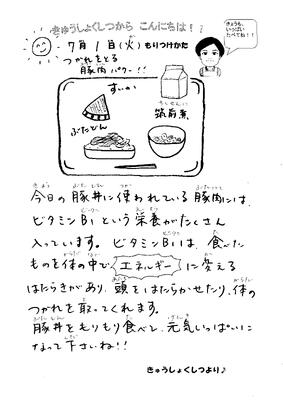 きゅうしょくしつから こんにちは!
きょうも、
いっぱい
たべてね!!
7月1日(火) もりつけかた
つかれをとる
豚肉パワー!!
すいか
ちくぜんに
筑前煮
ぶたどん
今日の豚丼に使われている豚肉には、
ビタミンB1という栄養がたくさん
入っています。ビタミンB1は、食べた
ものを体の中でエネルギーに変える
はたらきがあり、頭をはたらかせたり、体の
つかれを取ってくれます。
豚丼をもりもり食べて、元気いっぱいに
なって下さいね!!
きゅうしょくしつより♪